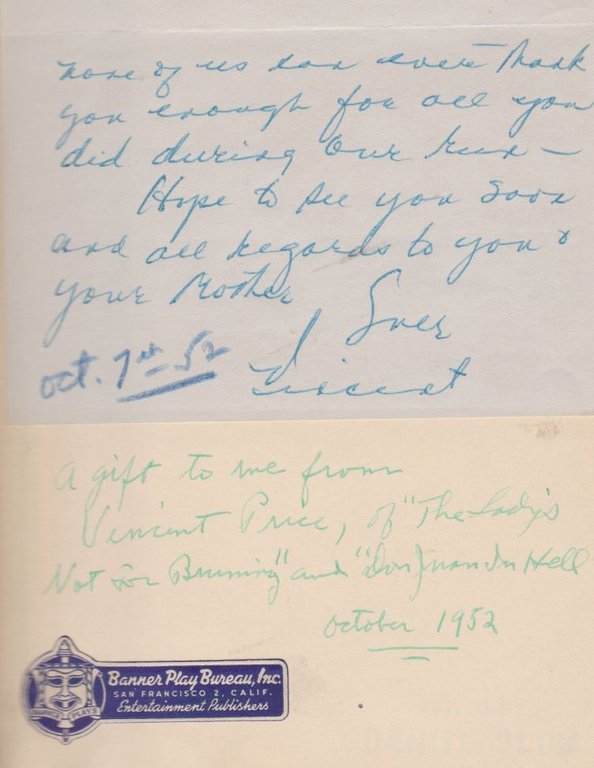 none of us can ever thank
you enough for all you
did during our run —
Hope to see you soon
and all regards to you &
your Mother
Ever
Vincent
Oct. 7th 52
A gift to me from
Vincent Price, of "The Lady's
Not For Burning" and "Don Juan In Hell
October 1952
Banner Play Bureau, Inc.
SAN FRANCISCO 2, CALIF.
Entertainment Publishers
BANNER PLAYS